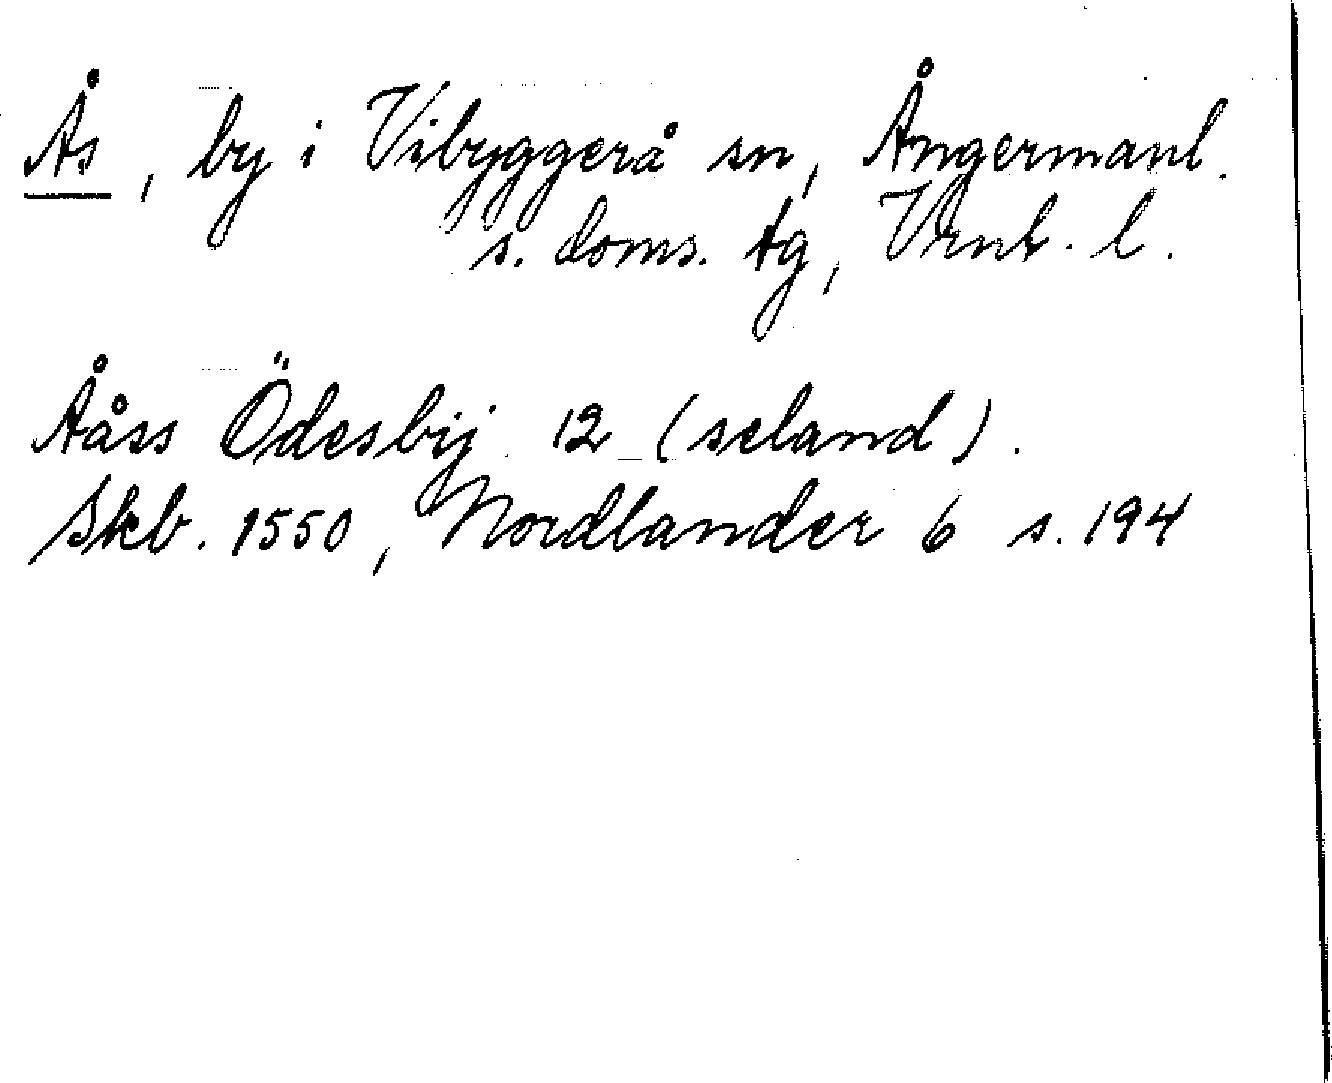 Ås, by i Vibyggerå sn, Ångermanl.
s. doms. tg, Vrnl. l.
Ååss Ödesbij 12 (seland).
Skb. 1550, Nordlander 6 s. 194